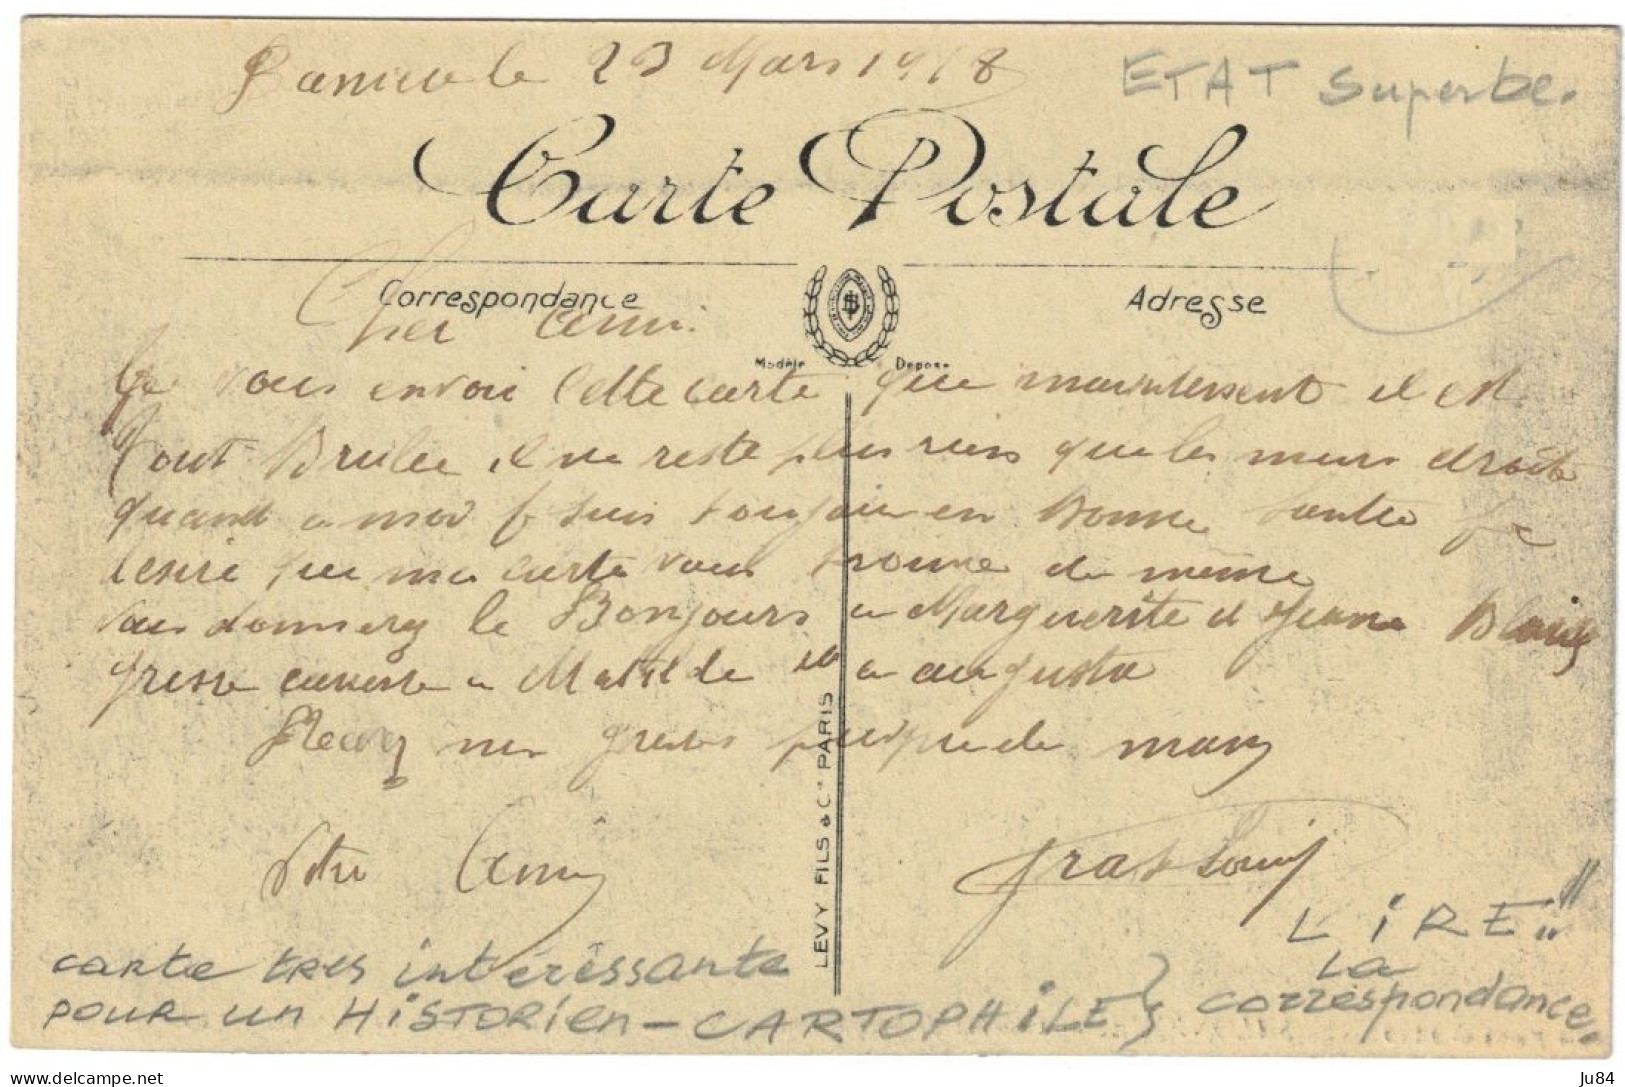 le 23 Mars 1918
ETAT superbe.
Carte Postale
Correspondance
Adresse
Cher ami
Modèle Déposé
Je vous envoi cette carte que maintessent il est
Tout Brulée il ne reste plus rien que les murs droite
quand a moi je suis toujour en Bonne santée je
desire que ma carte vous trouve de même
vous donnerez le Bonjours a Marguerite et Jeanne
a Matilde et a augusta
de
votre ami
Louis
LEVY FILS & Cie PARIS
LIRE!!
La
correspondance.
carte tres interêssante
pour un HiSTORien - CARTOPHiLE }
delcampe.net
Ju84